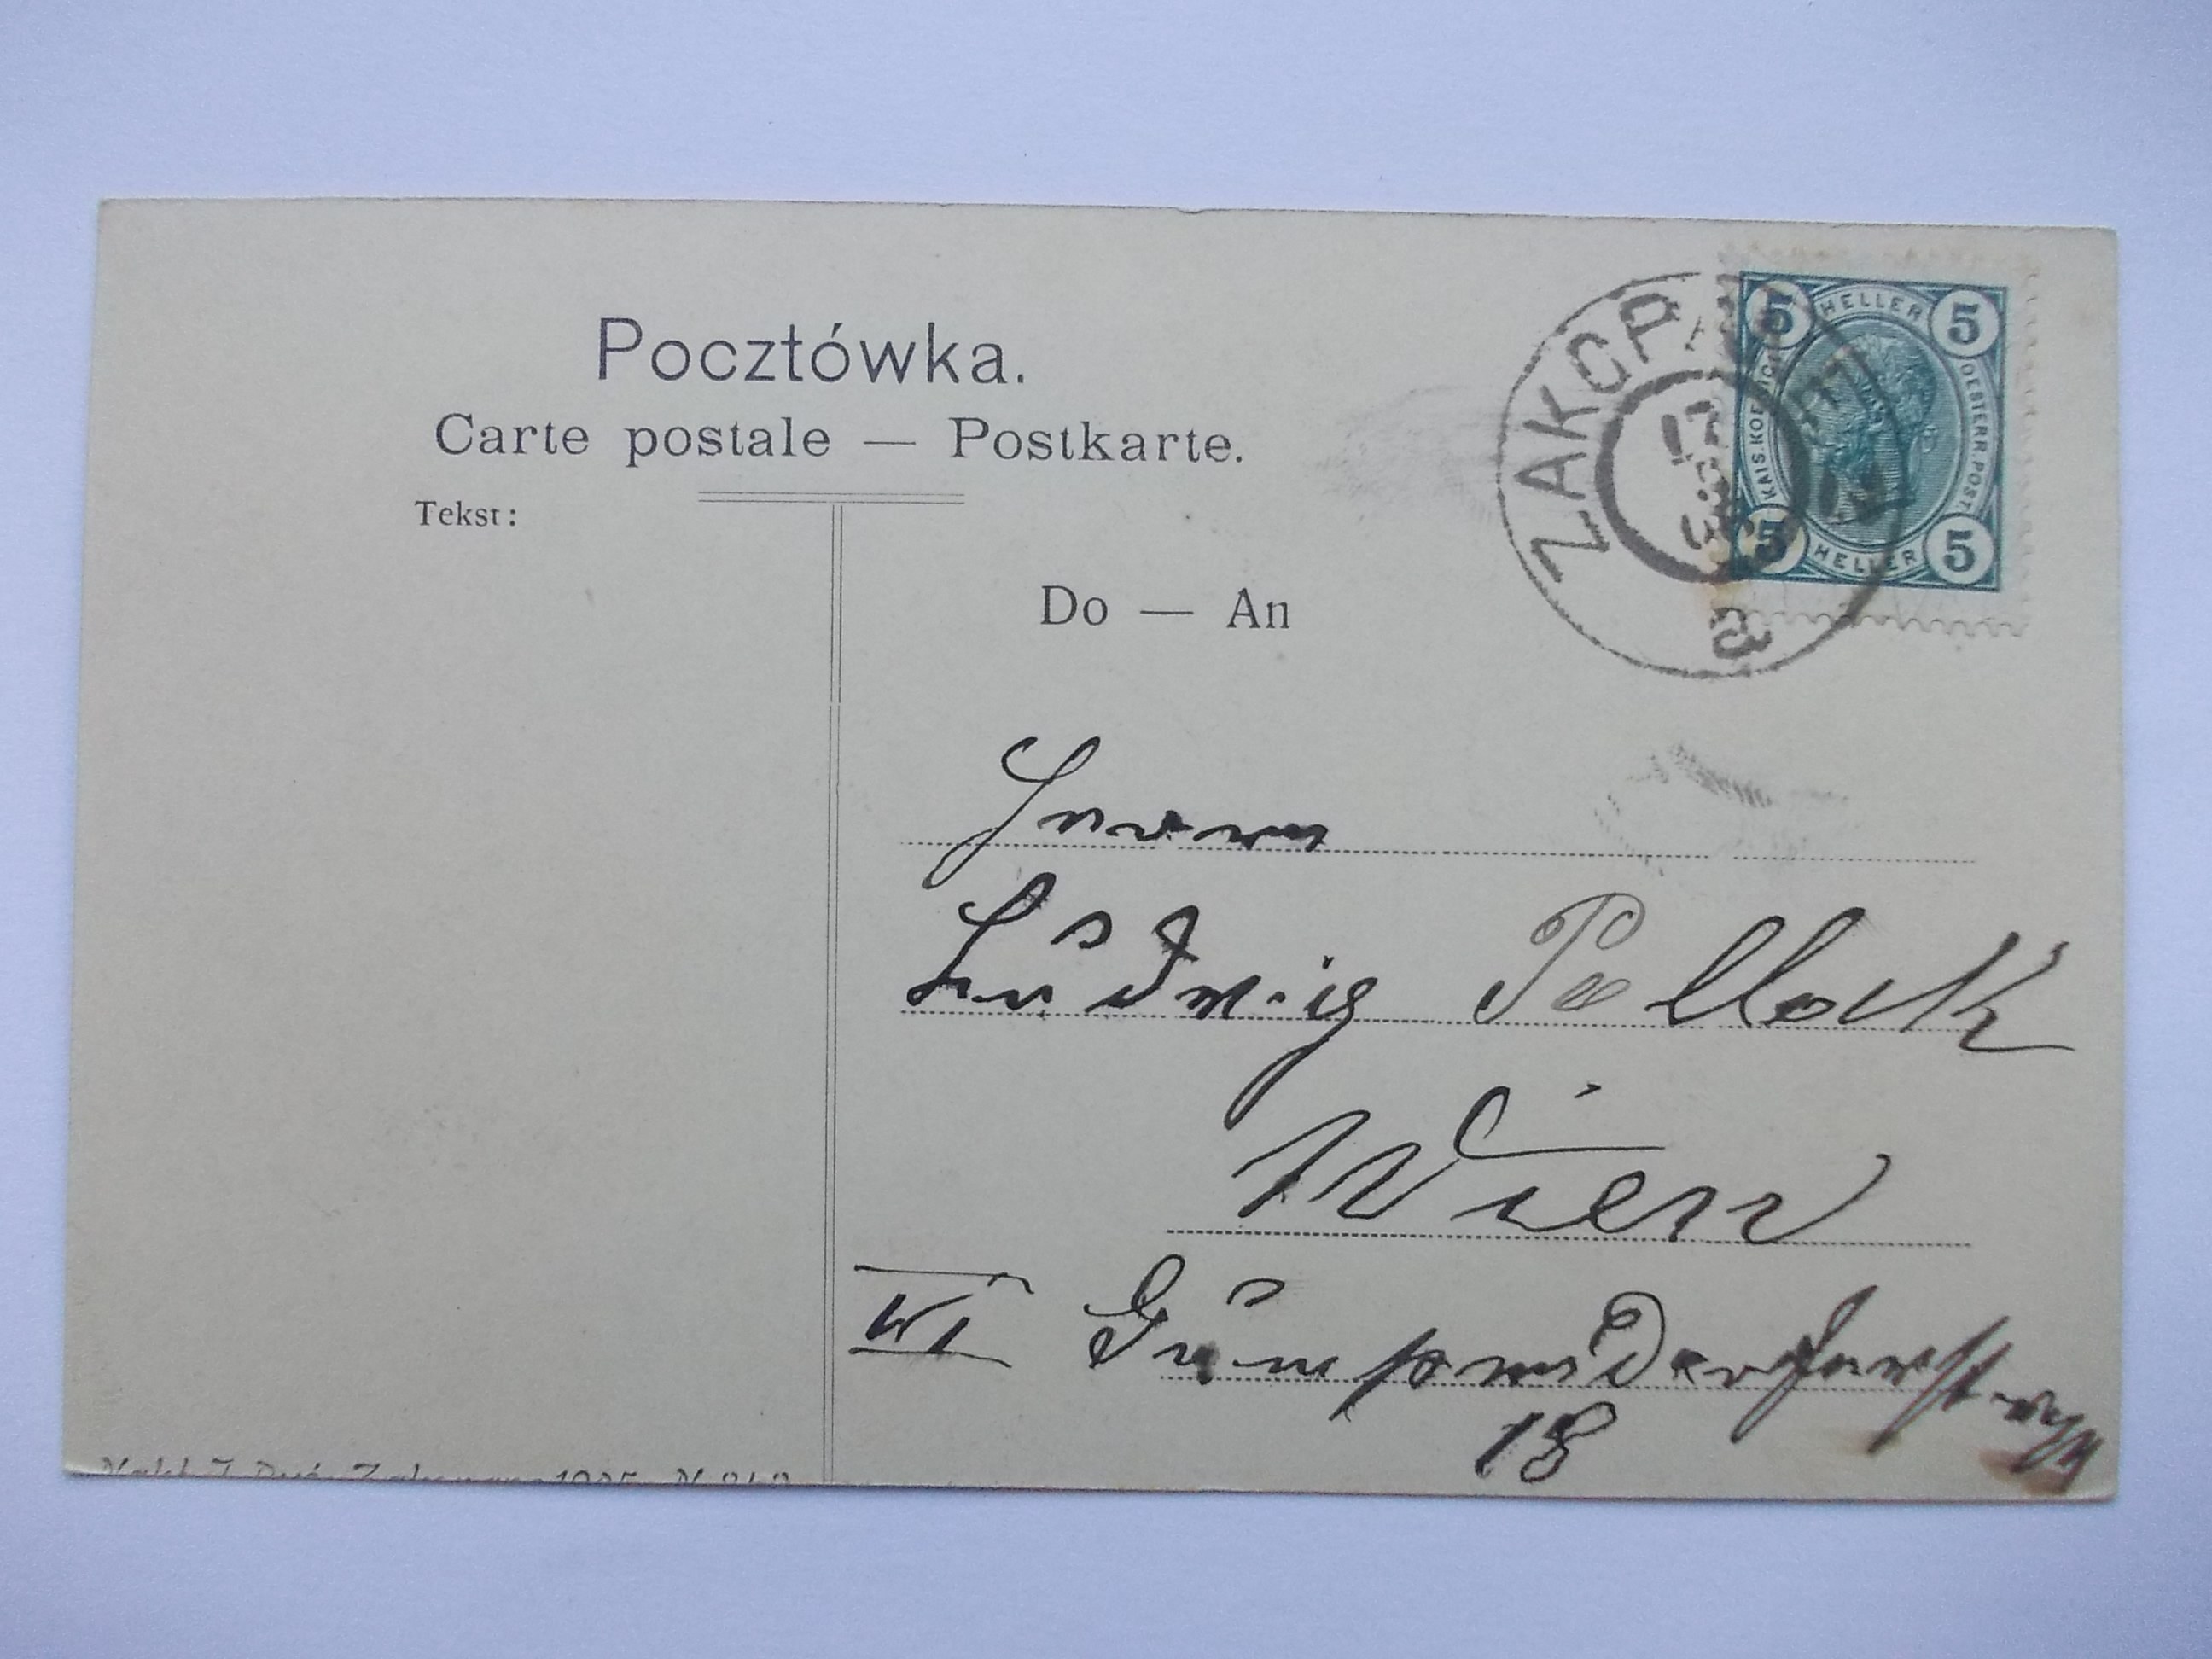 Pocztówka.
Carte postale — Postkarte.
Tekst:
Do — An
ZAKOPANE
a
5 HELLER 5
KAIS. KOENIGL. OESTERR. POST
5 HELLER 5
Herrn
Ludwig Pollock
Wien
VI Gumpendorferstrasse
18
Zakopane 1905